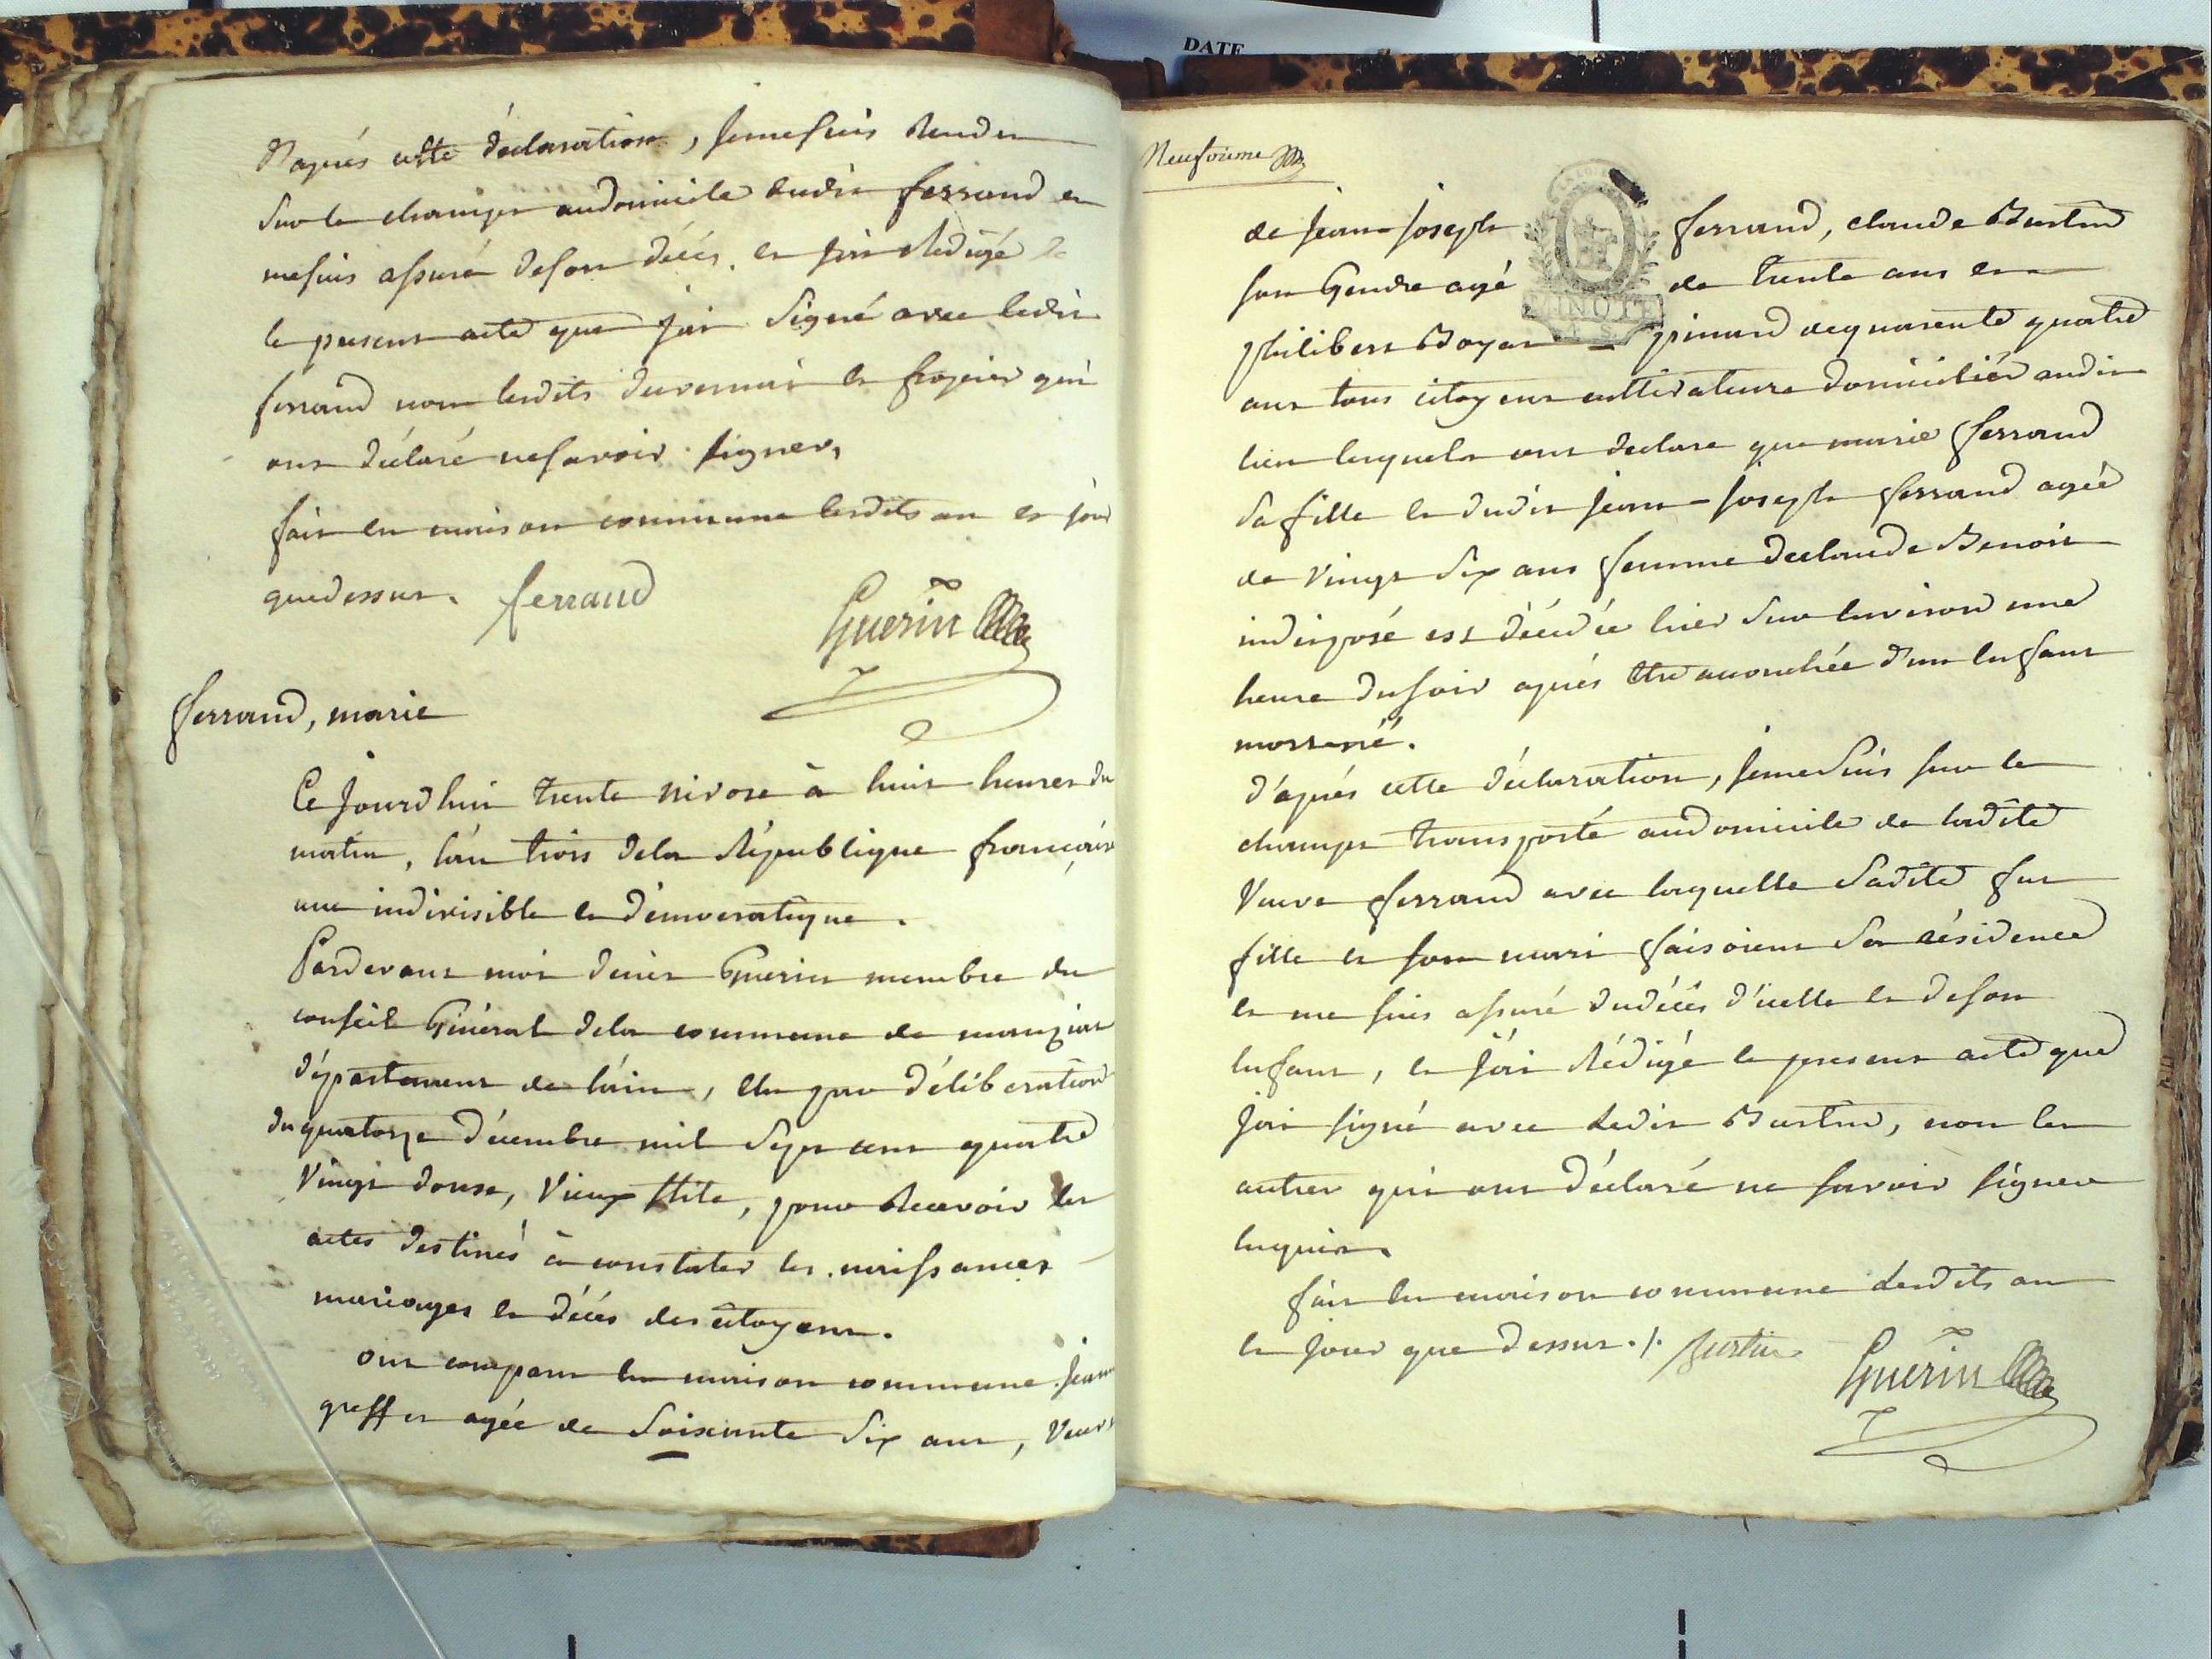 D'aprés cette déclaration, jemesuis rendu
Sur le champ audomicile dudit ferrand et
mesuis assuré deson décés, et j'ai rédigé
le present acte que j'ai signé avec ledit
ferrand non lesdits duvernai et frojeier qui
ont déclaré nesavoir signer,
fait en maison commune lesdits an et jour
quedessus. ferrand
Guerin
ferrand, marie
Ce jourdhui trente nivose à huit heures du
matin, l'an trois dela République francaise
une indivisible et démocratique.
Pardevant moi denis Guerin membre du
conseil Général dela commune de manziat
département de l'ain, élu par délibération
du quatorze décembre mil sept cent quatre
Vingt douse, Vieux stile, pour recevoir les
actes destinés à constater les naissances
mariages et décés des citoyens.
ont comparu en maison commune jeanne
greffet agée de Soixante Six ans, Veuve
DATE
Neufvieme
de jean-joseph ferrand, claude Burtin
son Gendre agé de trente ans et
philibert Boyat pinard de quarente quatre
ans tous citoyens cultivateurs domiciliés audit
lieu lesquels ont declare que marie ferrand
sa fille et dudit jean-joseph ferrand agée
de Vingt Six ans femme declaude Benoit
indisposé est décédée hier sur environ une
heure dusoir aprés etre accouchée d'un enfant
mort né.
d'aprés cette déclaration, jemesuis sur le
champ transporté audomicile de ladite
Veuve ferrand avec laquelle sadite fut
fille et son mari faisoient sa résidence
et me suis assuré dudécès d'icelle et deson
enfant, et j'ai rédigé le present acte que
j'ai signé avec ledit Burtin, non les
autres qui ont déclaré ne savoir signer
enquis.
fait en maison commune lesdits an
et jour que dessus ./. Burtin
Guerin